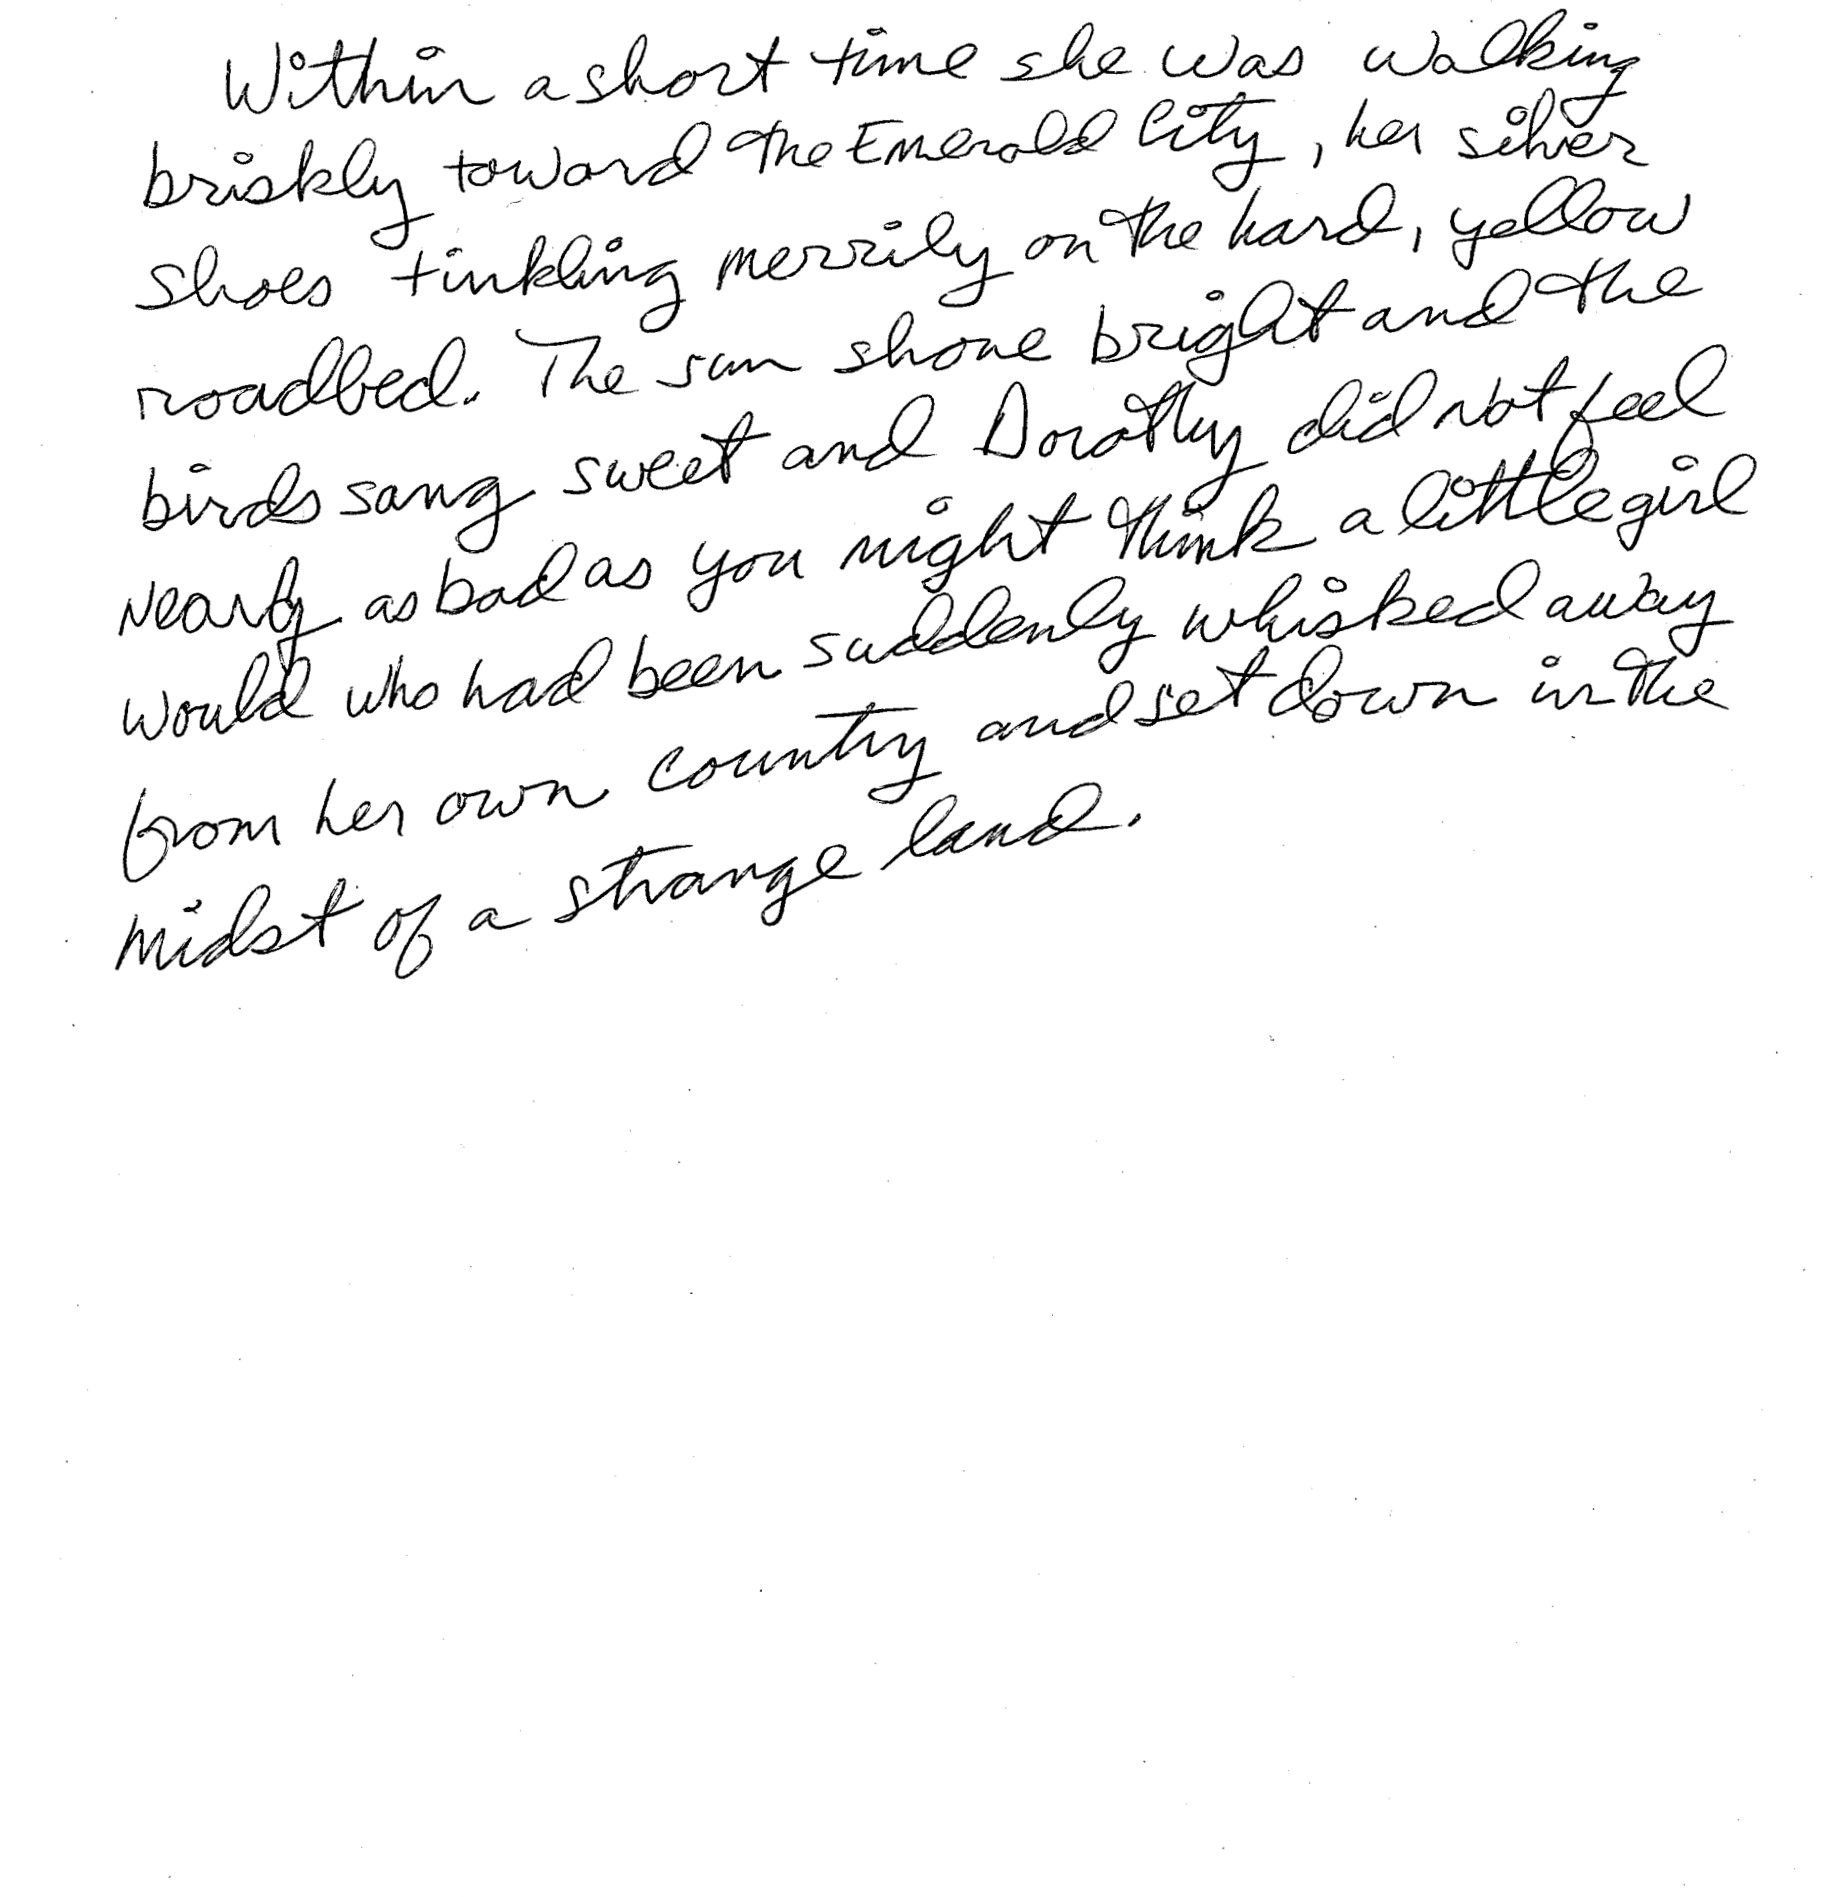 Within a short time she was walking
briskly toward the Emerald City, her silver
shoes tinkling merrily on the hard, yellow
roadbed. The sun shone bright and the
birds sang sweet and Dorothy did not feel
nearly as bad as you might think a little girl
would who had been suddenly whisked away
from her own country and set down in the
midst of a strange land.